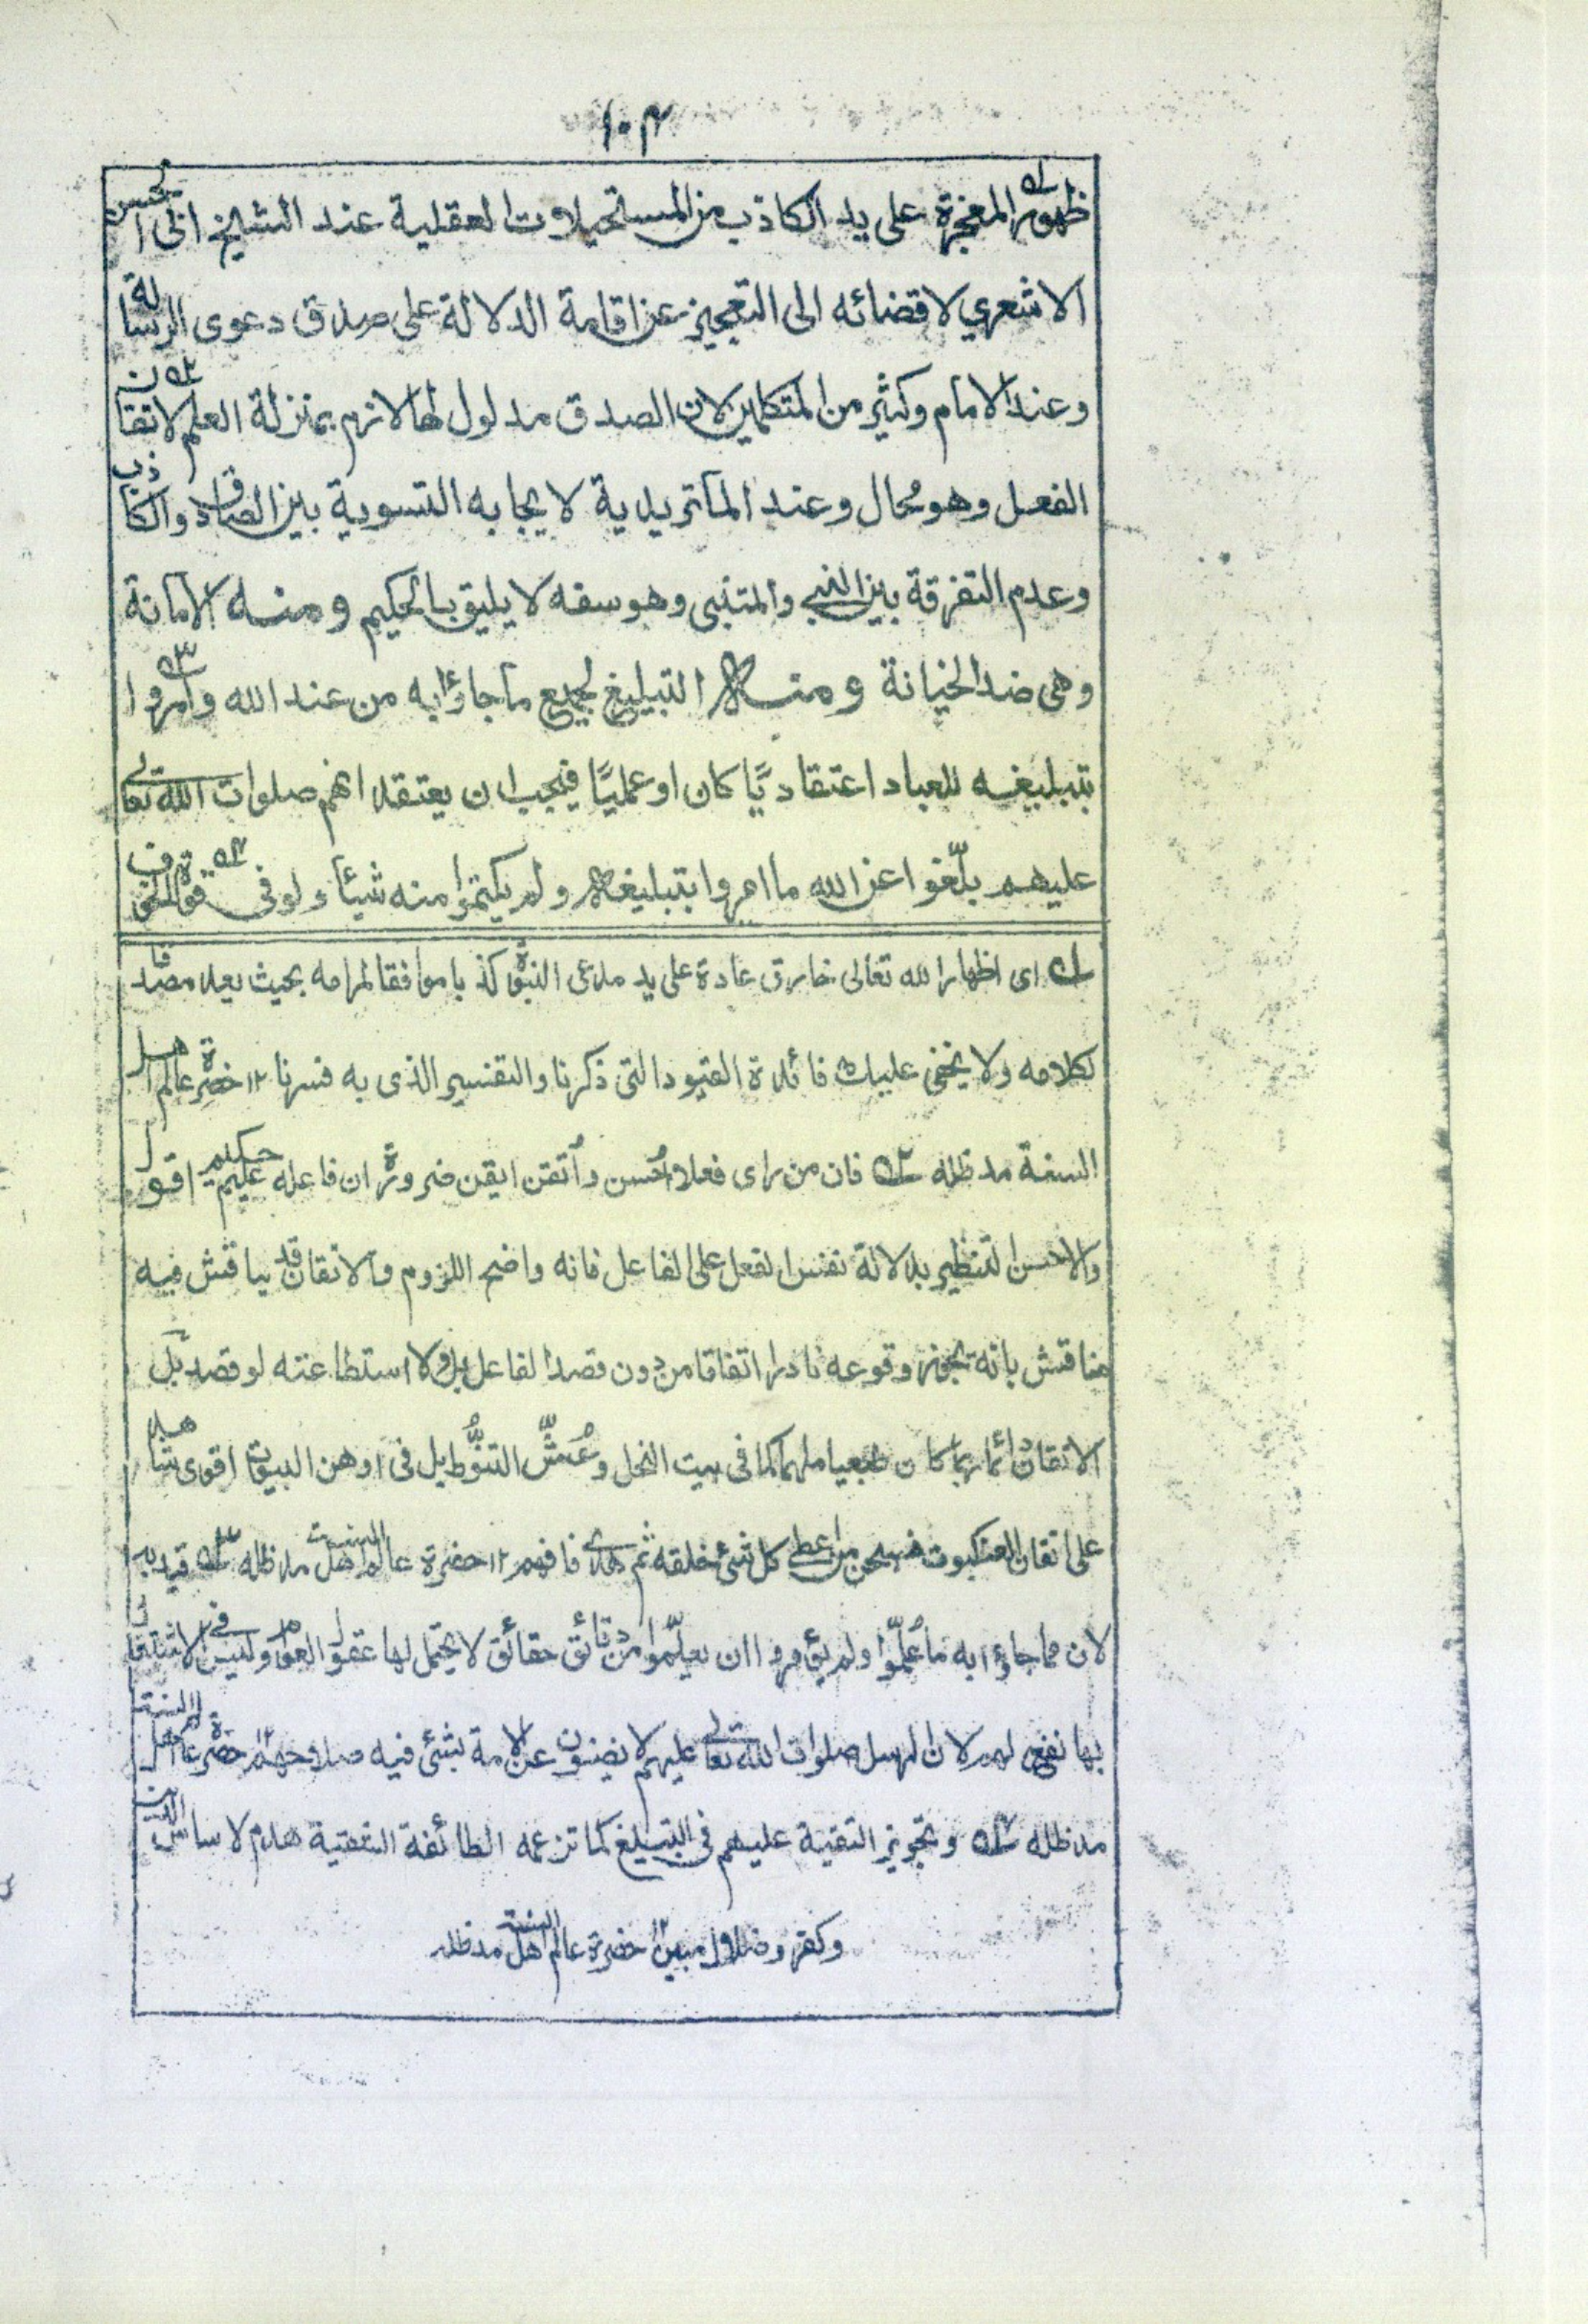 ١٠٤
ظهور المعجزة على يد الكاذب من المستحيلات العقلية عند الشيخ ابى الحسن
الاشعري لاقضائه الى التعجيز عن اقامة الدلالة على صدق دعوى الرسالة
وعند الامام وكثير من المتكلمين لان الصدق مدلول لها لازم بمنزلة العلم لاتقان
الفعل وهو محال وعند الماتريدية لايجابه التسوية بين الصادق والكاذب
وعدم التفرقة بين النبي والمتنبى وهو سفه لا يليق بالحكيم ومنه الامانة
وهى ضد الخيانة ومنه التبليغ لجميع ما جاؤا به من عند الله وامروا
بتبليغه للعباد اعتقاديًا كان او عمليًا فيجب ان يعتقد انهم صلوات الله تعالى
عليهم بلّغوا عن الله ما امروا بتبليغه ولم يكتموا منه شيئا ولو فى قوة الخوف
له اى اظهار الله تعالى خارق عادة على يد مدعى النبوة كذبا موافقا لمرامه بحيث يعد مصدقا
لكلامه ولا يخفى عليك فائدة القيود التى ذكرنا والتفسير الذى به فسرنا ١٢ حضرة عالم اهل
السنة مد ظله ٢ه فان من راى فعلا احُسن واُتقن ايقن ضرورة ان فاعله عليم حكيم اقول
والاحسن التنظير بدلالة نفس الفعل على الفاعل فانه واضح اللزوم والاتقان قد يناقش فيه
مناقش بانه يجوز وقوعه نادرا اتفاقا من دون قصد الفاعل بل ولا استطاعته لو قصد بل
الاتقان دائما ربما كان طبعيا ملهما كما فى بيت النحل وعُشّ التنوُّط بل فى اوهن البيوت اقوى شاهد
على اتقان العنكبوت فسبحن من اعطى كل شئ خلقه ثم هدى فافهم ١٢ حضرة عالم اهل السنت مد ظله ٣ه قيد به
لان مما جاؤا به ما عُلّموا ولم يؤمروا ان يعلّموا من دقائق حقائق لا يحتمل لها عقول العوام وليس فى الاشتغال
بها نفع لهم لان الرسل صلوات الله تعالى عليهم لا يضنون عن الامة بشئ فيه صلاحهم ١٢ حضرة عالم اهل السنة
مد ظله ٤ه وتجويز التقية عليهم فى التبليغ كما تزعمه الطائفة الشقية هدم لاساس الدين
وكفر وضلال مبين ١٢ حضرة عالم اهل السنة مد ظله